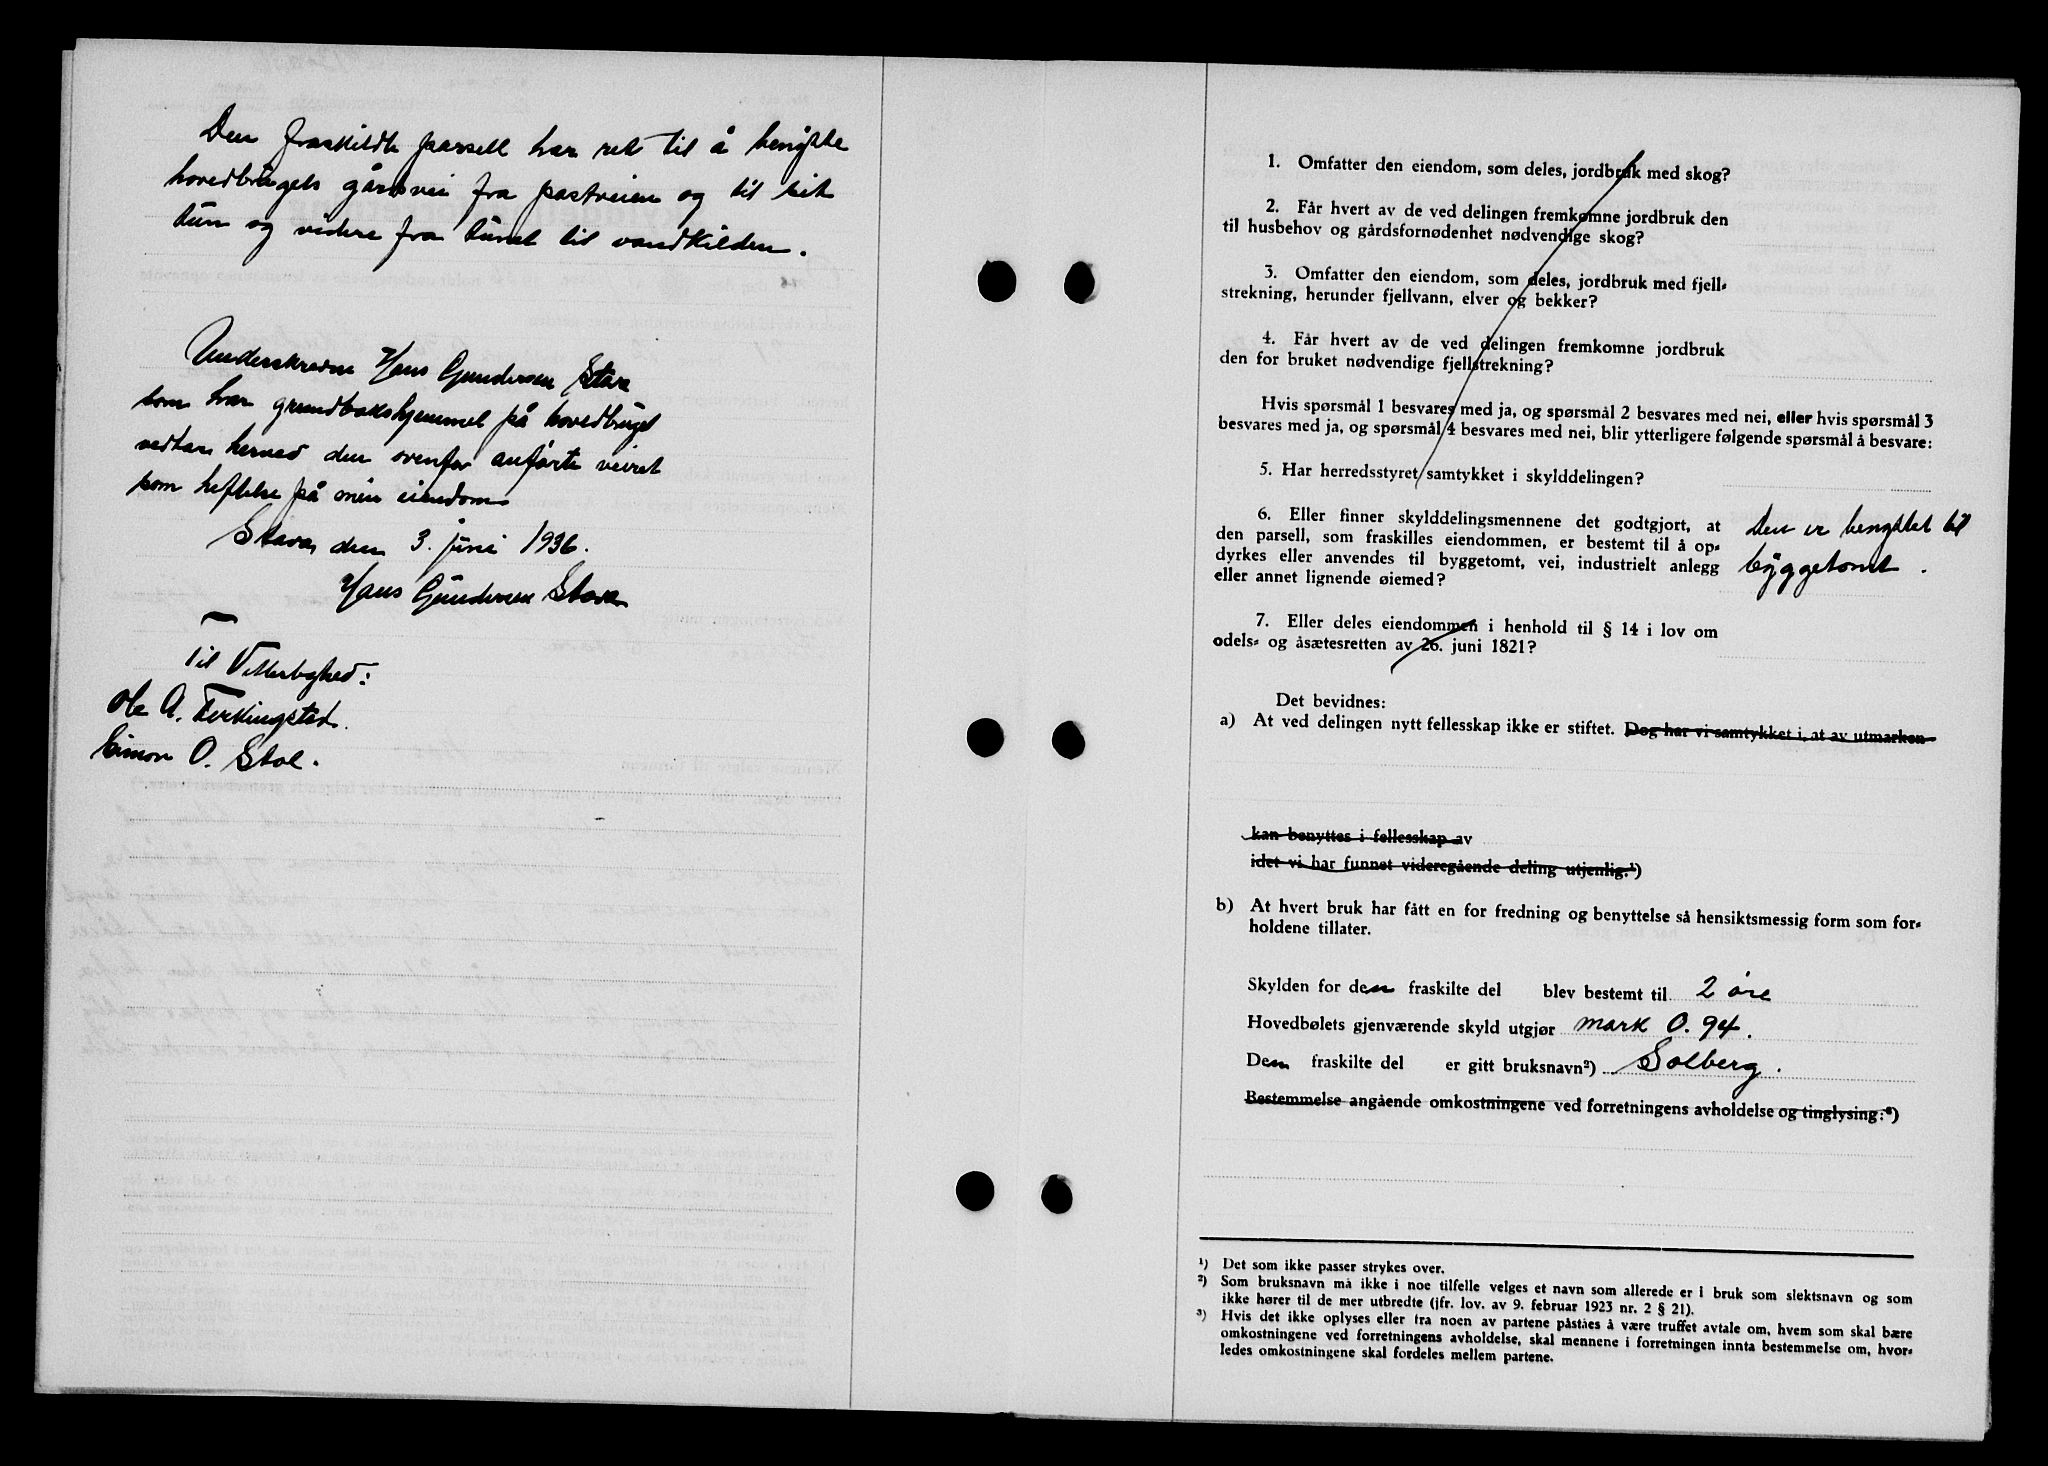 Den fraskildte parsell har ret til å benytte
hovedbrugets gårdsvei fra postveien og til sit
tun og videre fra tunet til vandkilden.
Underskrevne Hans Gundersen Stava
som har grundbokshjemmel på hovedbruget
vedtar herved den ovenfor anførte veiret
som heftelse på min eiendom
Stava den 3. juni 1936.
Hans Gundersen Stava
Til Vitterlighed:
Ole A. Ferkingstad.
Simon O. Stol.
1. Omfatter den eiendom, som deles, jordbruk med skog?
2. Får hvert av de ved delingen fremkomne jordbruk den
til husbehov og gårdsfornødenhet nødvendige skog?
3. Omfatter den eiendom, som deles, jordbruk med fjell-
strekning, herunder fjellvann, elver og bekker?
4. Får hvert av de ved delingen fremkomne jordbruk
den for bruket nødvendige fjellstrekning?
Hvis spørsmål 1 besvares med ja, og spørsmål 2 besvares med nei, eller hvis spørsmål 3
besvares med ja, og spørsmål 4 besvares med nei, blir ytterligere følgende spørsmål å besvare:
5. Har herredsstyret samtykket i skylddelingen?
6. Eller finner skylddelingsmennene det godtgjort, at
den parsell, som fraskilles eiendommen, er bestemt til å op-
dyrkes eller anvendes til byggetomt, vei, industrielt anlegg
eller annet lignende øiemed?
Den er benyttet til
byggetomt.
7. Eller deles eiendommen i henhold til § 14 i lov om
odels- og åsætesretten av 26. juni 1821?
Det bevidnes:
a) At ved delingen nytt fellesskap ikke er stiftet. Dog har vi samtykket i, at av utmarken
kan benyttes i fellesskap av
idet vi har funnet videregående deling utjenlig.¹)
b) At hvert bruk har fått en for fredning og benyttelse så hensiktsmessig form som for-
holdene tillater.
Skylden for den fraskilte del blev bestemt til 2 øre
Hovedbølets gjenværende skyld utgjør mark 0.94.
Den fraskilte del er gitt bruksnavn²) Solberg.
Bestemmelse angående omkostningene ved forretningens avholdelse og tinglysing:³)
¹) Det som ikke passer strykes over.
²) Som bruksnavn må ikke i noe tilfelle velges et navn som allerede er i bruk som slektsnavn og som
ikke hører til de mer utbredte (jfr. lov. av 9. februar 1923 nr. 2 § 21).
³) Hvis det ikke oplyses eller fra noen av partene påståes å være truffet avtale om, hvem som skal bære
omkostningene ved forretningens avholdelse, skal mennene i forretningen innta bestemmelse om, hvor-
ledes omkostningene skal fordeles mellem partene.